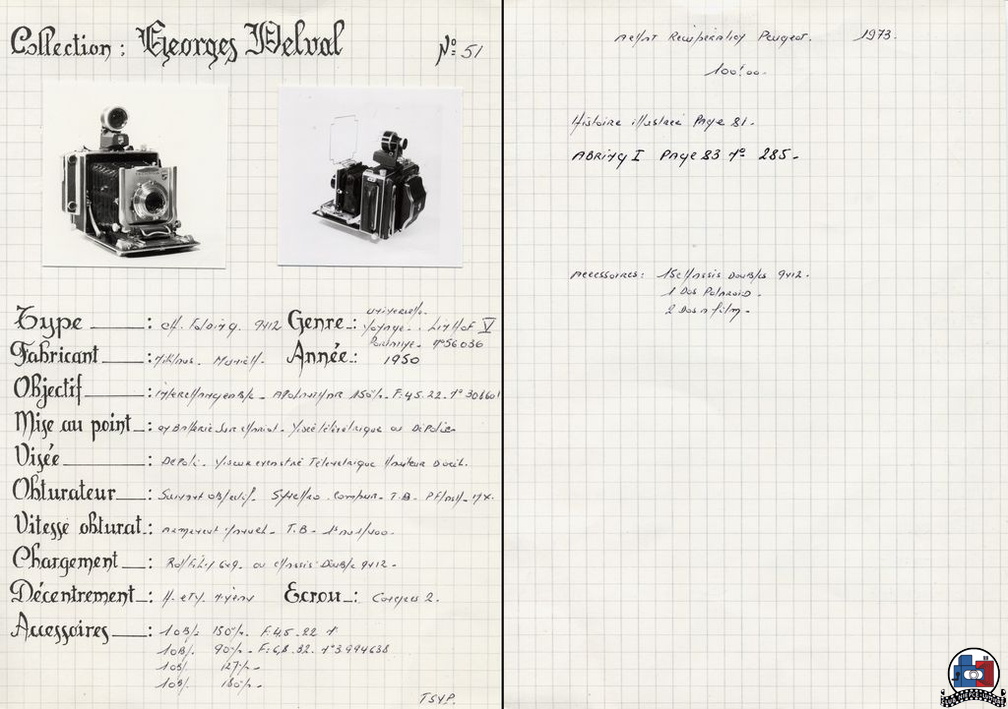 Collection : Georges Delval N° 51
Type : ch. Folding. 9x12 Genre : universelle. Voyage. Linhof V
n°56036
Fabricant : Munich. Année : 1950
Objectif : interchangeable - 150%. F. 4,5. 22. n°
Mise au point : crémaillère sur chariot - visée télémétrique ou Dépoli
Visée : Dépoli. Télémétrique hauteur d'œil.
Obturateur : Suivant objectif. Synchro. Compur. T.B. P Flash - MX.
Vitesse obturat. : T.B - 1s au 1/400.
Chargement : Roll film 6x9. ou chassis Double 9x12 -
Décentrement : Ecrou : Congrès 2.
Accessoires : 1 OBJ. 150%. F. 4,5 - 22 n°
1 OBJ. 90%. - F: 6,8. 32. n°3994638
1 OBJ. 127% -
1 OBJ. 180% -
TSVP.
Peugeot. 1973.
100F00.
Histoire illustrée Page 81.
ABRING I Page 83 n° 285 -
Accessoires : 15 chassis Doubles 9x12.
1 Dos Polaroid.
2 Dos à film -